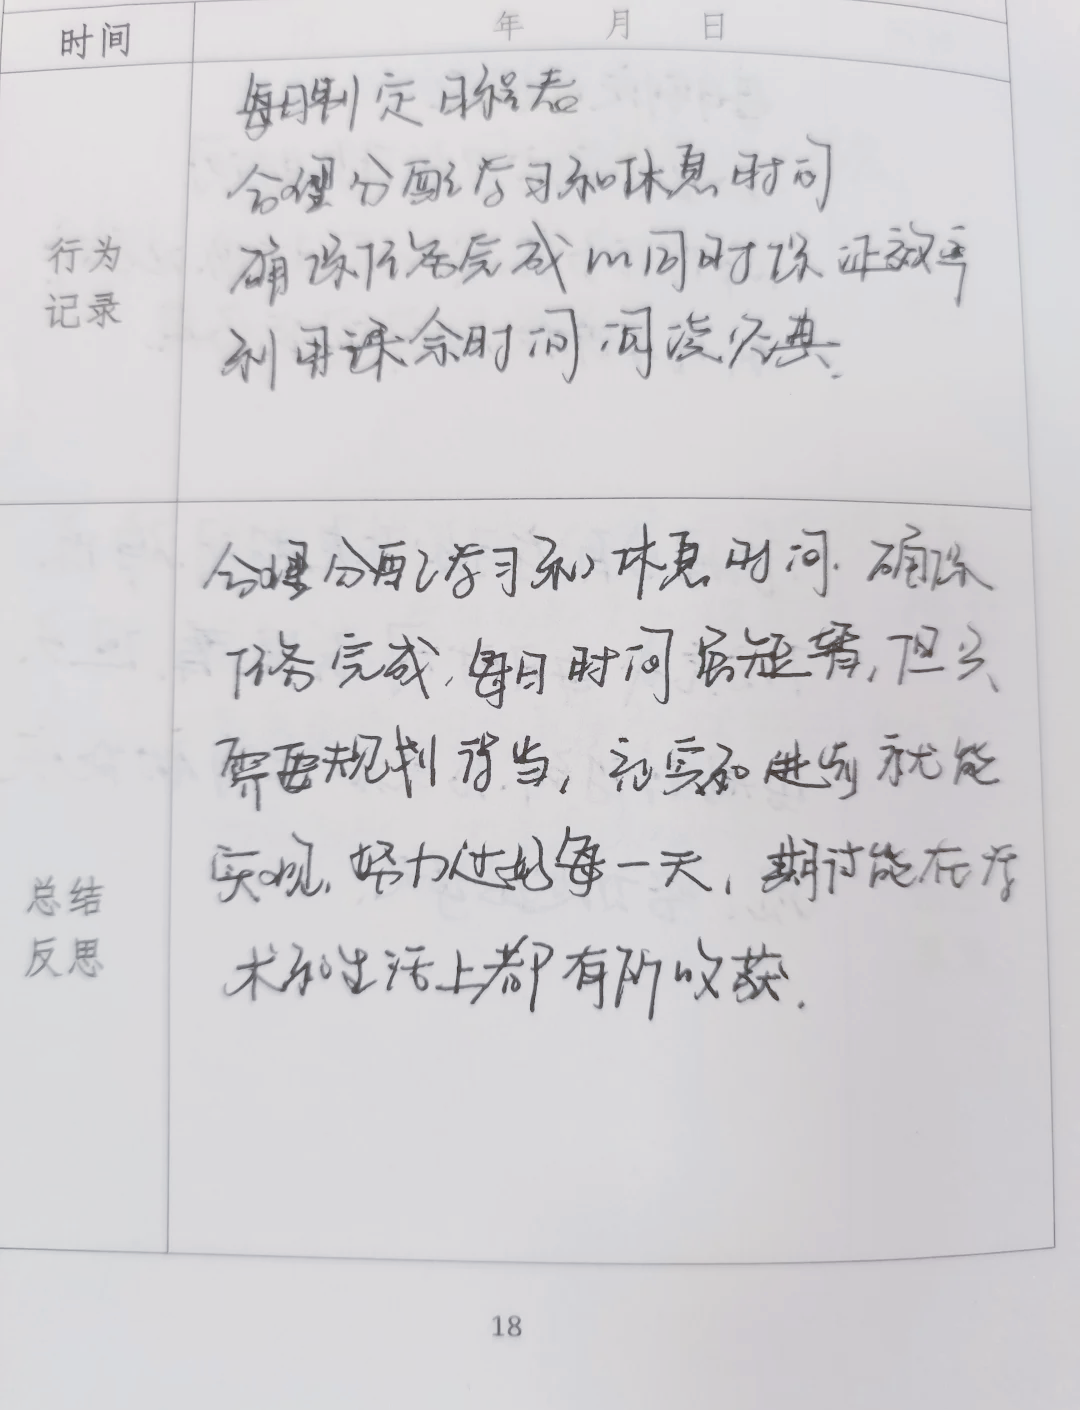 时间 年 月 日
每日制定日程表
合理分配学习和休息时间
行为
确保任务完成 同时保证效率
记录
利用课余时间阅读
合理分配学习和休息时间.确保
任务完成,每日时间 ,但只
需要规划得当, 就能
实现.努力过好每一天,期 能在学
总结
术和生活上都有所收获.
反思
18